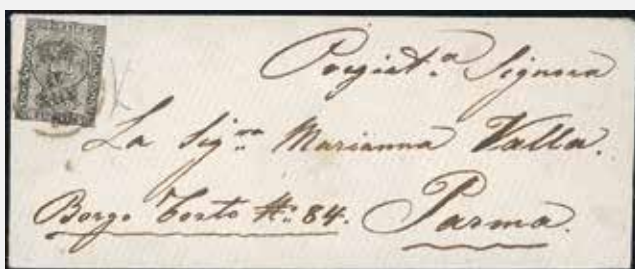 Pregiat.a Signora
La Sig.na Marianna Valla.
Borgo Torto N.o 84. Parma.